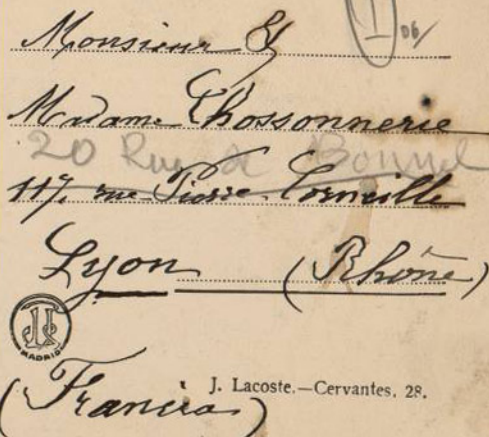 I 06/
Monsieur &
Madame Chossonnerie
20 Rue de Bonnel
117, rue Pierre Corneille
Lyon (Rhône)
MADRID
J. Lacoste.—Cervantes, 28.
(Francia)